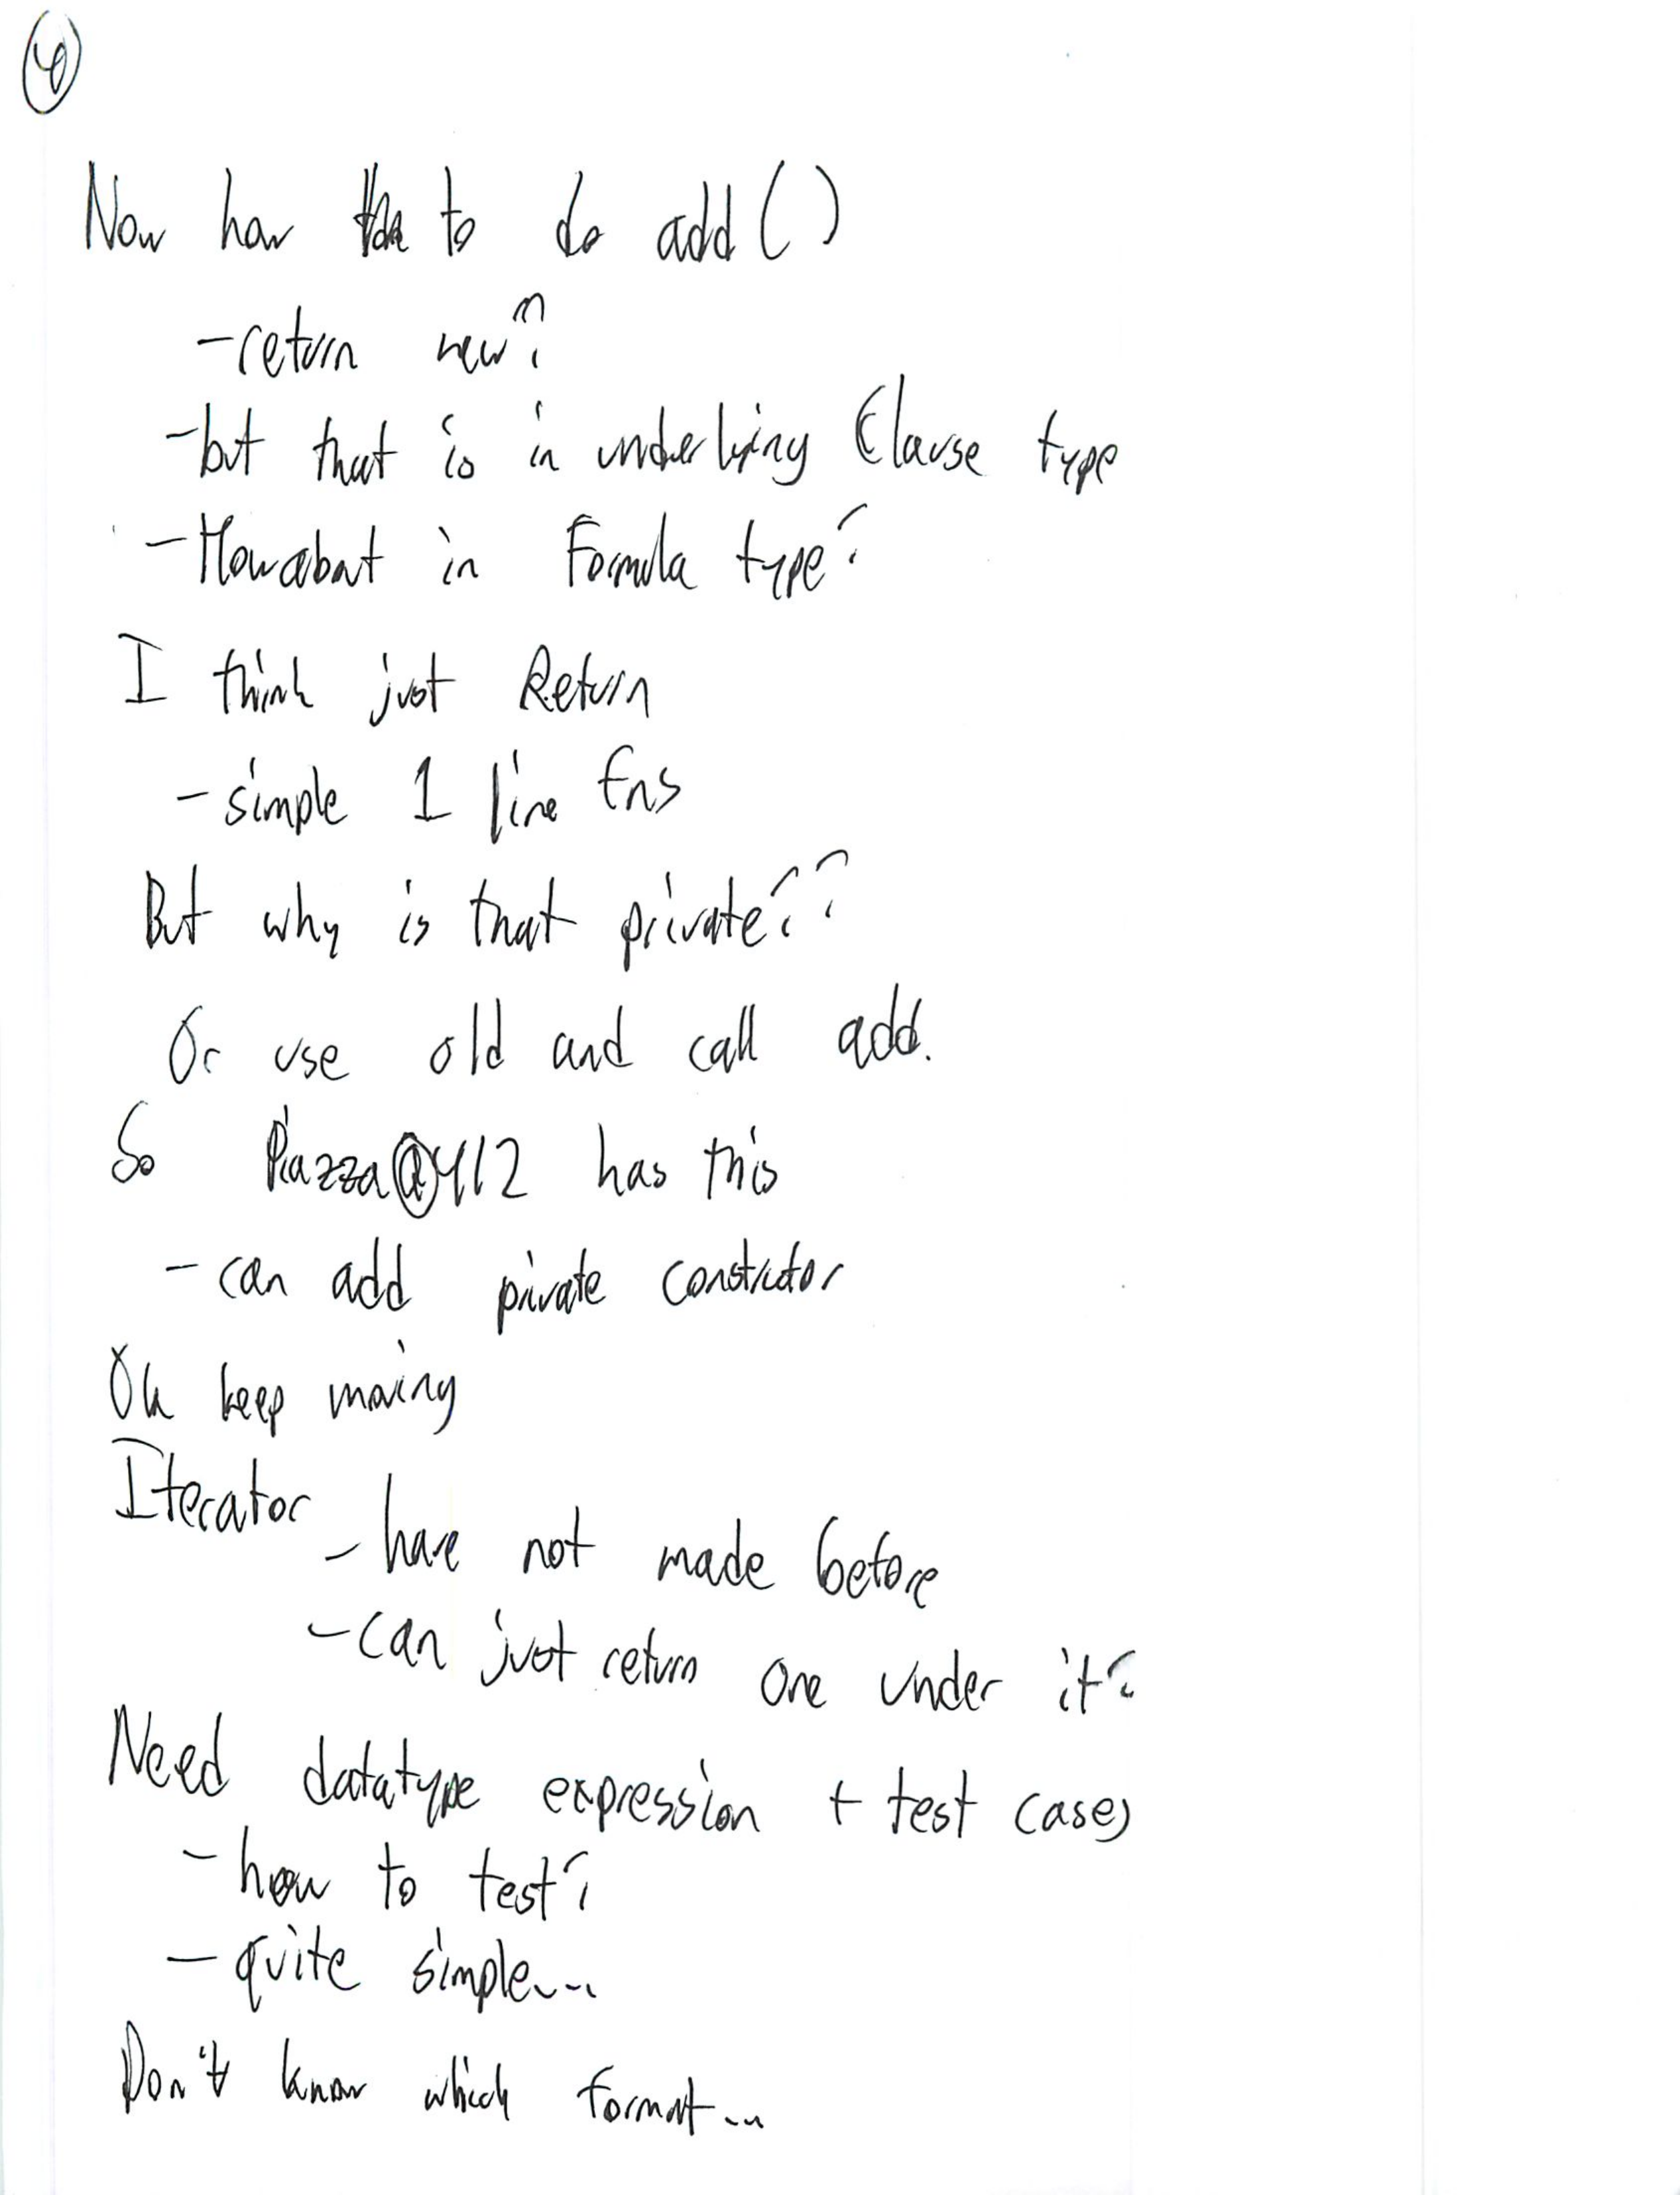 4
Now how to do add()
- return new?
- but that is in underlying Clause type
- How about in Formula type?
I think just Return
- simple 1 line fns
But why is that private??
Or use old and call add.
So Piazza@412 has this
- can add private constructor
Oh keep moving
Iterator
- have not made before
- can just return one under it?
Need datatype expression + test cases
- how to test?
- quite simple...
Don't know which format...